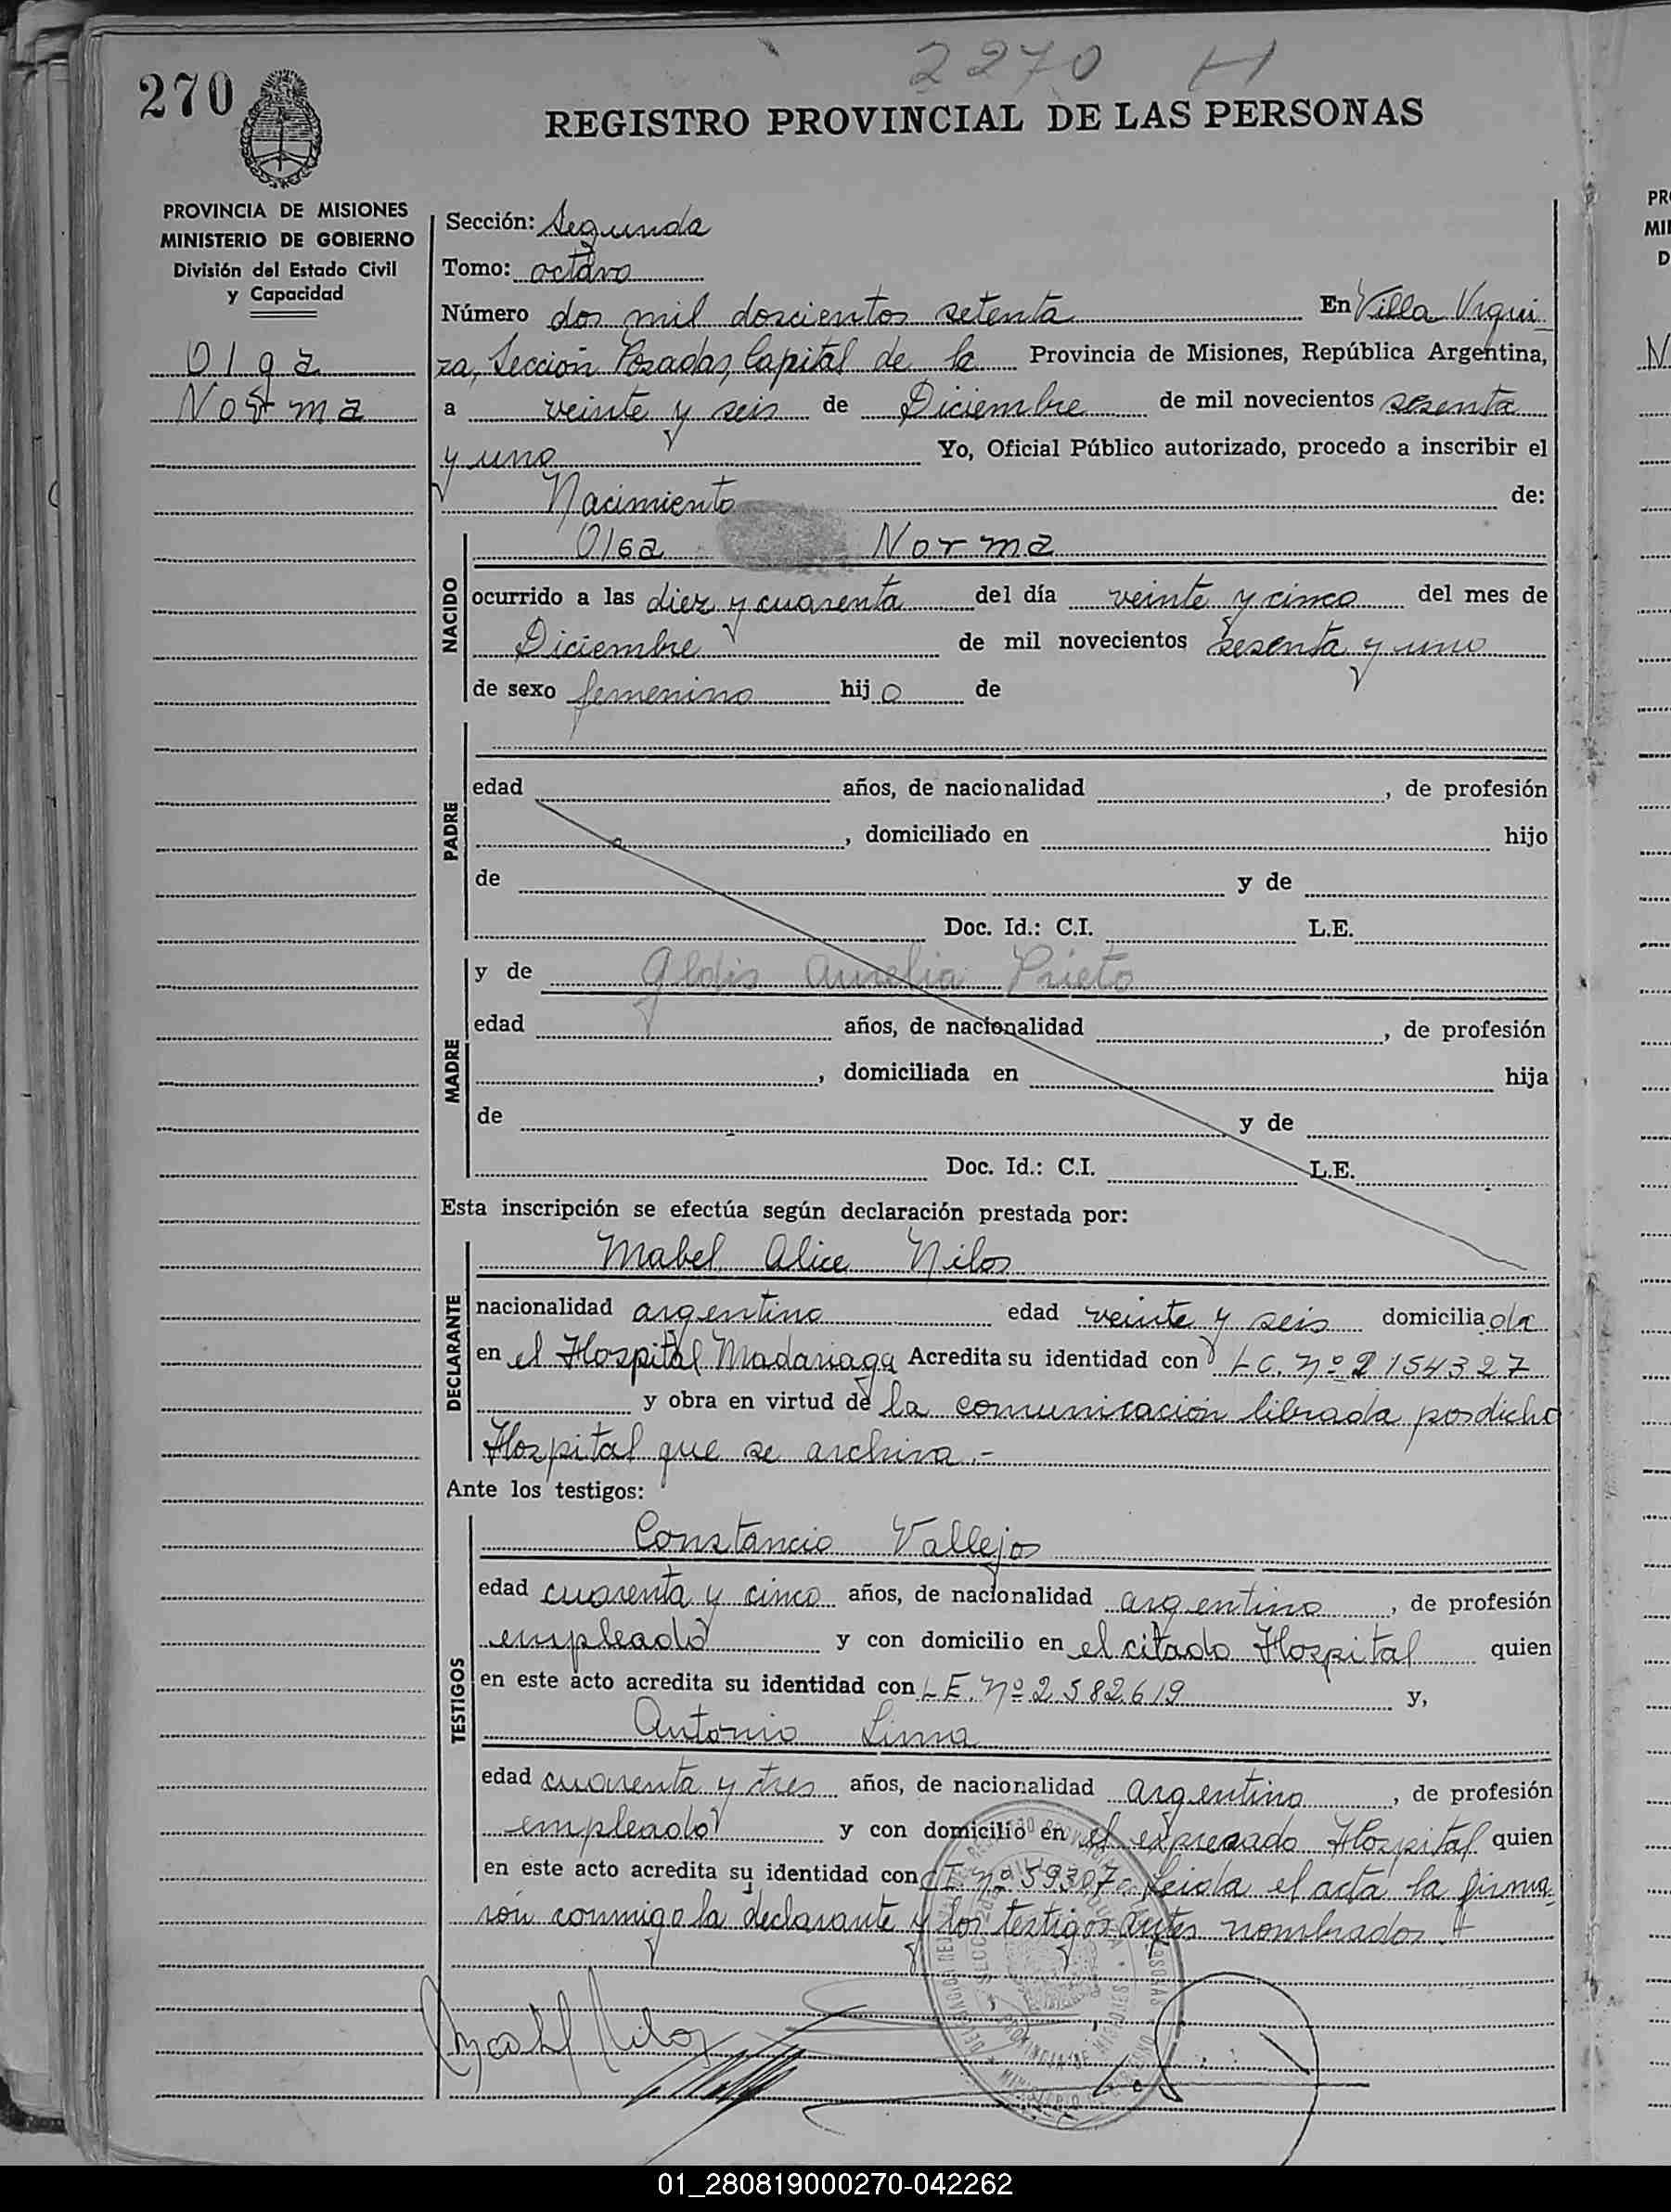 2270 H
270
REGISTRO PROVINCIAL DE LAS PERSONAS
PROVINCIA DE MISIONES
MINISTERIO DE GOBIERNO
División del Estado Civil
y Capacidad
Olga
Norma
Sección: Segunda
Tomo: octavo
Número dos mil doscientos setenta En Villa Urqui
za, Sección Posadas, Capital de la Provincia de Misiones, República Argentina,
a veinte y seis de Diciembre de mil novecientos sesenta
y uno Yo, Oficial Público autorizado, procedo a inscribir el
Nacimiento de:
NACIDO
Olga Norma
ocurrido a las diez y cuarenta del día veinte y cinco del mes de
Diciembre de mil novecientos sesenta y uno
de sexo femenino hij o de
PADRE
edad años, de nacionalidad , de profesión
, domiciliado en hijo
de y de
Doc. Id.: C.I. L.E.
MADRE
y de Gldis Aurelia Prieto
edad años, de nacionalidad , de profesión
, domiciliada en hija
de y de
Doc. Id.: C.I. L.E.
Esta inscripción se efectúa según declaración prestada por:
DECLARANTE
Mabel Alice Nilos
nacionalidad argentino edad veinte y seis domicilia da
en el Hospital Madariaga Acredita su identidad con L C. Nº 2154327
y obra en virtud de la comunicación librada por dicho
Hospital que se archiva.-
Ante los testigos:
TESTIGOS
Constancio Vallejos
edad cuarenta y cinco años, de nacionalidad argentino, de profesión
empleado y con domicilio en el citado Hospital quien
en este acto acredita su identidad con L E. Nº 2582619 y,
Antonio Lima
edad cuarenta y tres años, de nacionalidad argentino, de profesión
empleado y con domicilio en el expresado Hospital quien
en este acto acredita su identidad con CI. Nº 59307. Leida el acta la firma-
ron conmigo la declarante y los testigos antes nombrados.
Mabel Nilos
01_280819000270-042262